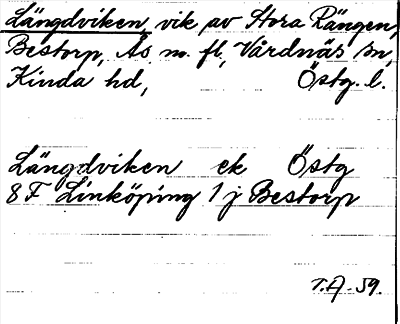 Längdviken, vik av Stora Rängen,
Bestorp, Ås m. fl., Vårdnäs sn,
Kinda hd, Östg. l.
Längdviken ek Östg
8F Linköping 1 j Bestorp
T.A. 59.